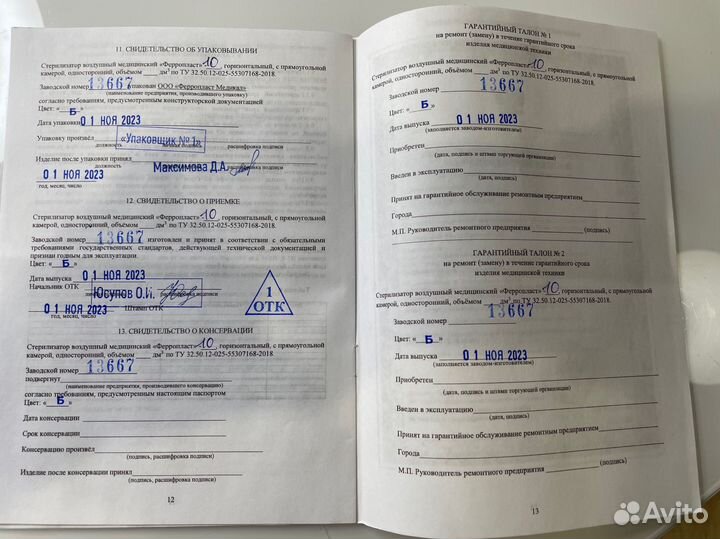 11. СВИДЕТЕЛЬСТВО ОБ УПАКОВЫВАНИИ
Стерилизатор воздушный медицинский «Ферропласт» 10, горизонтальный, с прямоугольной
камерой, односторонний, объёмом ____ дм³ по ТУ 32.50.12-025-55307168-2018.
Заводской номер 13667 упакован ООО «Ферропласт Медикал»
(наименование предприятия, производившего упаковку)
согласно требованиям, предусмотренным конструкторской документацией
Цвет: «Б»
Дата упаковки 01 НОЯ 2023
Упаковку произвёл «Упаковщик № 1»
должность личная подпись расшифровка подписи
Изделие после упаковки принял
должность Максимова Д.А. расшифровка подписи
01 НОЯ 2023
год, месяц, число
12. СВИДЕТЕЛЬСТВО О ПРИЕМКЕ
Стерилизатор воздушный медицинский «Ферропласт» 10, горизонтальный, с прямоугольной
камерой, односторонний, объёмом ____ дм³ по ТУ 32.50.12-025-55307168-2018.
Заводской номер 13667 изготовлен и принят в соответствии с обязательными
требованиями государственных стандартов, действующей технической документацией и
признан годным для эксплуатации.
Цвет: «Б»
Дата выпуска 01 НОЯ 2023
Начальник ОТК
Юсупов О.И. расшифровка подписи
01 НОЯ 2023 Штамп ОТК
год, месяц, число
1
ОТК
13. СВИДЕТЕЛЬСТВО О КОНСЕРВАЦИИ
Стерилизатор воздушный медицинский «Ферропласт» 10, горизонтальный, с прямоугольной
камерой, односторонний, объёмом ____ дм³ по ТУ 32.50.12-025-55307168-2018.
Заводской номер 13667
подвергнут
(наименование предприятия, производившего консервацию)
согласно требованиям, предусмотренным настоящим паспортом
Цвет: «Б»
Дата консервации
Срок консервации
Консервацию произвёл
(подпись, расшифровка подписи)
Изделие после консервации принял
(подпись, расшифровка подписи)
12
ГАРАНТИЙНЫЙ ТАЛОН № 1
на ремонт (замену) в течение гарантийного срока
изделия медицинской техники
Стерилизатор воздушный медицинский «Ферропласт» 10, горизонтальный, с прямоугольной
камерой, односторонний, объёмом ____ дм³ по ТУ 32.50.12-025-55307168-2018.
Заводской номер 13667
Цвет: «Б»
Дата выпуска 01 НОЯ 2023
(заполняется заводом-изготовителем)
Приобретен
(дата, подпись и штамп торгующей организации)
Введен в эксплуатацию
(дата, подпись)
Принят на гарантийное обслуживание ремонтным предприятием
Города
М.П. Руководитель ремонтного предприятия (подпись)
ГАРАНТИЙНЫЙ ТАЛОН № 2
на ремонт (замену) в течение гарантийного срока
изделия медицинской техники
Стерилизатор воздушный медицинский «Ферропласт» 10, горизонтальный, с прямоугольной
камерой, односторонний, объёмом ____ дм³ по ТУ 32.50.12-025-55307168-2018.
Заводской номер 13667
Цвет: «Б»
Дата выпуска 01 НОЯ 2023
(заполняется заводом-изготовителем)
Приобретен
(дата, подпись и штамп торгующей организации)
Введен в эксплуатацию
(дата, подпись)
Принят на гарантийное обслуживание ремонтным предприятием
Города
М.П. Руководитель ремонтного предприятия (подпись)
13
Avito